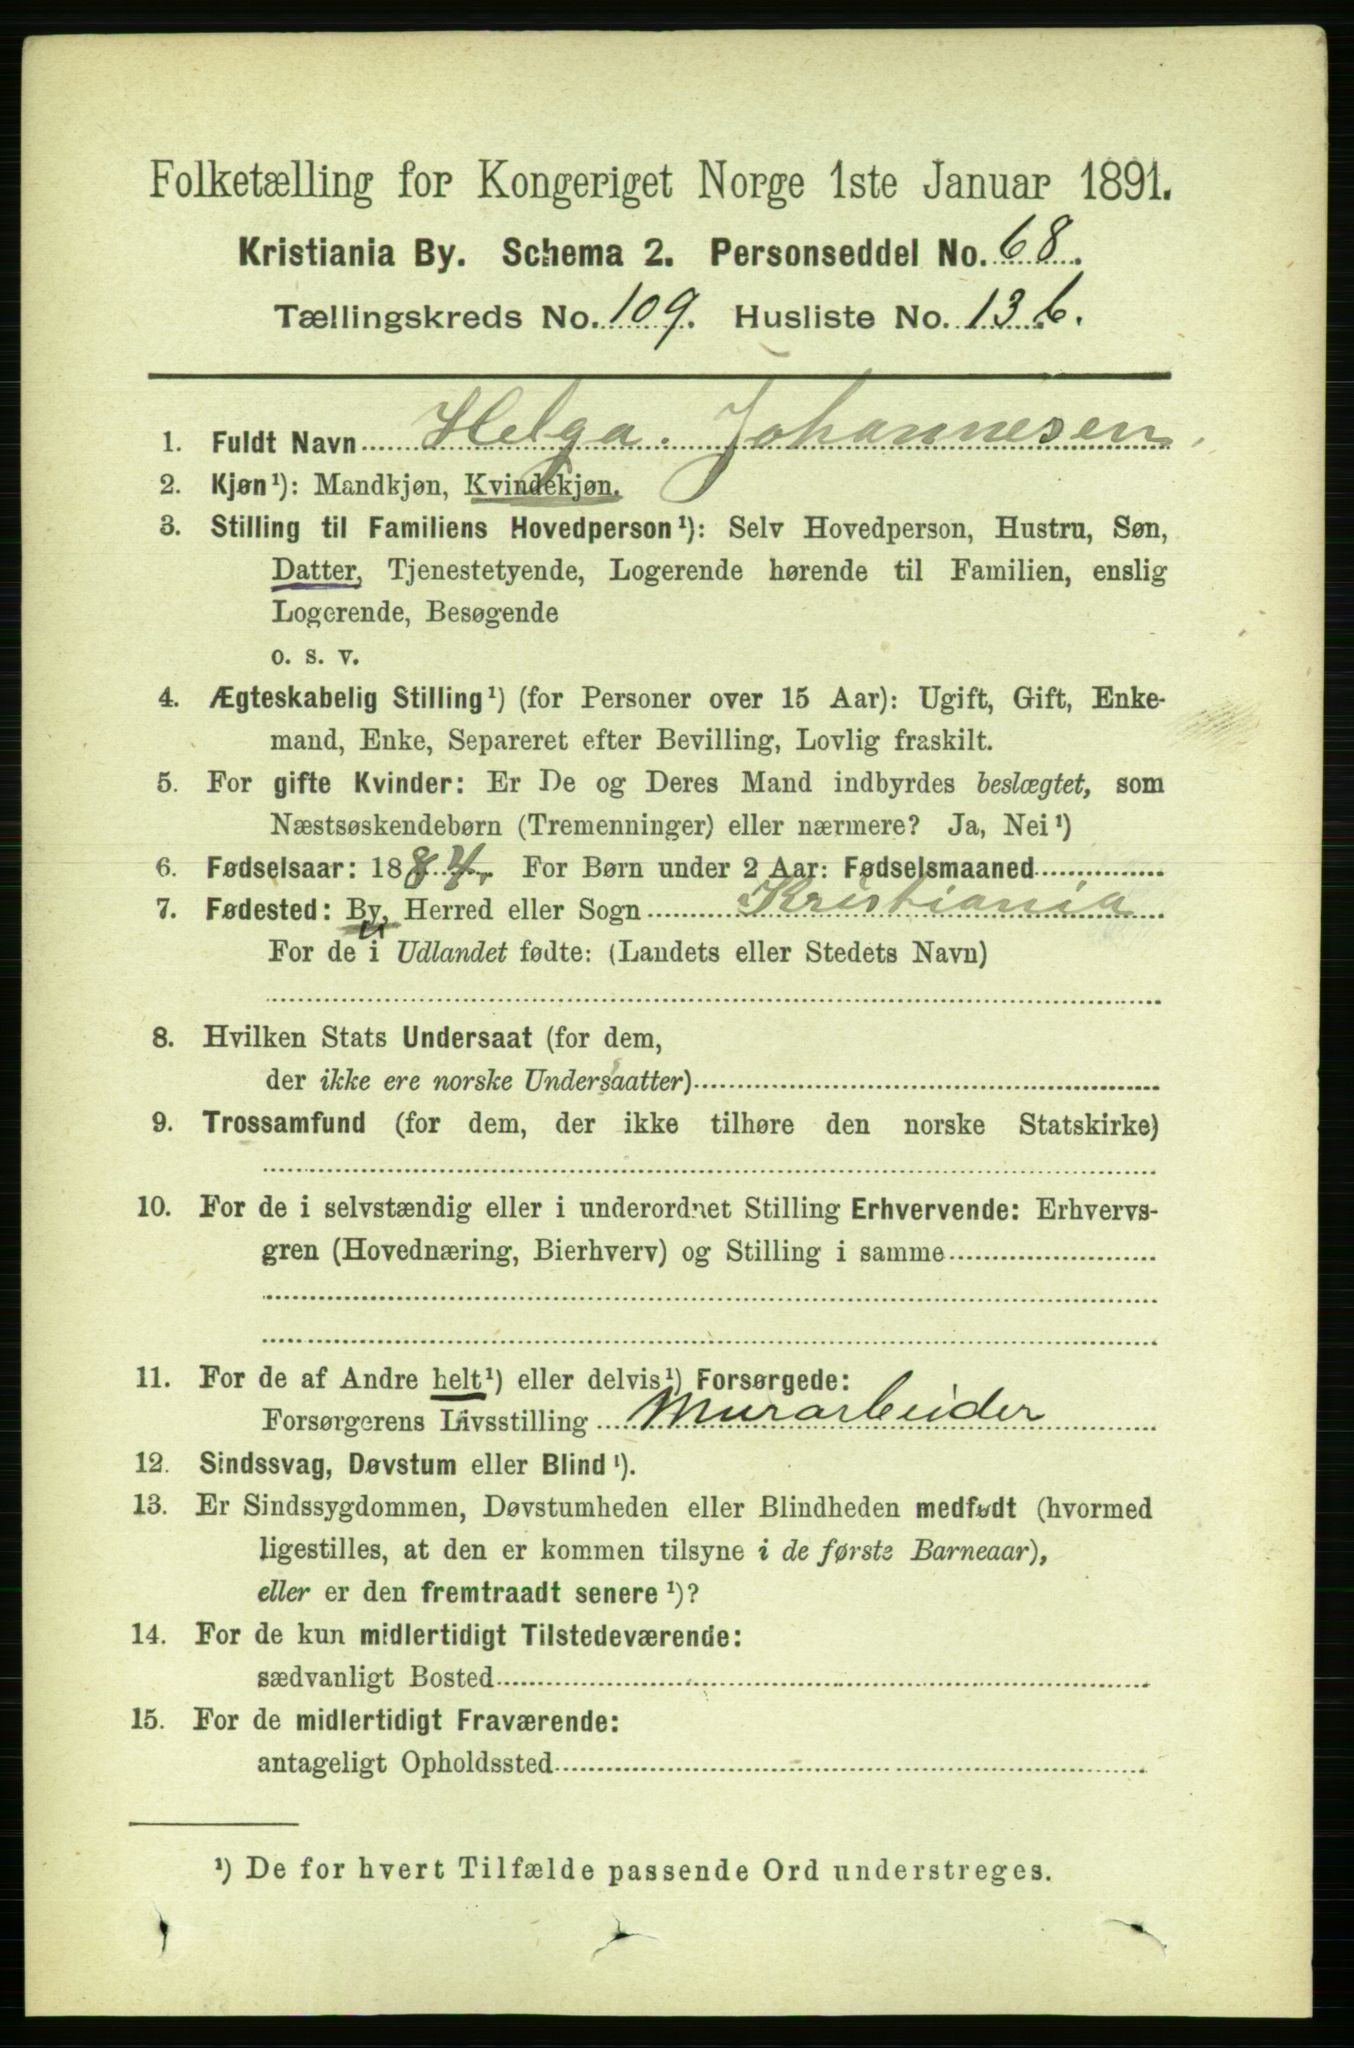 Folketælling for Kongeriget Norge 1ste Januar 1891.
Kristiania By. Schema 2. Personseddel No. 68.
Tællingskreds No. 109. Husliste No. 136.
1. Fuldt Navn Helga. Johannesen.
2. Kjøn¹): Mandkjøn, Kvindekjøn.
3. Stilling til Familiens Hovedperson¹): Selv Hovedperson, Hustru, Søn,
Datter, Tjenestetyende, Logerende hørende til Familien, enslig
Logerende, Besøgende
o. s. v.
4. Ægteskabelig Stilling¹) (for Personer over 15 Aar): Ugift, Gift, Enke-
mand, Enke, Separeret efter Bevilling, Lovlig fraskilt.
5. For gifte Kvinder: Er De og Deres Mand indbyrdes beslægtet, som
Næstsøskendebørn (Tremenninger) eller nærmere? Ja, Nei¹)
6. Fødselsaar: 1884. For Børn under 2 Aar: Fødselsmaaned
7. Fødested: By, Herred eller Sogn Kristiania
For de i Udlandet fødte: (Landets eller Stedets Navn)
8. Hvilken Stats Undersaat (for dem,
der ikke ere norske Undersaatter)
9. Trossamfund (for dem, der ikke tilhøre den norske Statskirke)
10. For de i selvstændig eller i underordnet Stilling Erhvervende: Erhvervs-
gren (Hovednæring, Bierhverv) og Stilling i samme
11. For de af Andre helt¹) eller delvis¹) Forsørgede:
Forsørgerens Livsstilling Murarbeider
12. Sindssvag, Døvstum eller Blind¹).
13. Er Sindssygdommen, Døvstumheden eller Blindheden medfødt (hvormed
ligestilles, at den er kommen tilsyne i de første Barneaar),
eller er den fremtraadt senere¹)?
14. For de kun midlertidigt Tilstedeværende:
sædvanligt Bosted
15. For de midlertidigt Fraværende:
antageligt Opholdssted
¹) De for hvert Tilfælde passende Ord understreges.